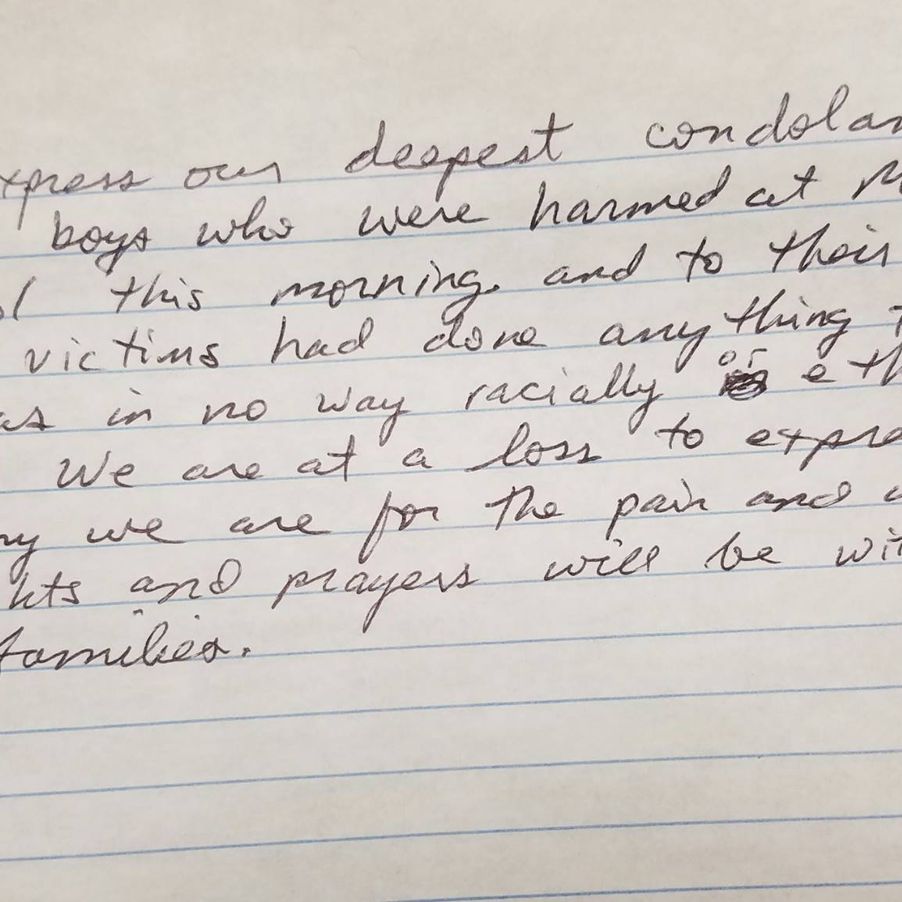 xpress our deepest condolan
boys who were harmed at M
ol this morning, and to their
victims had done anything t
as in no way racially or eth
We are at a loss to expre
ry we are for the pain and
hts and prayers will be wit
families.